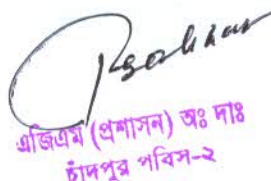 এজিএম (প্রশাসন) অঃ দাঃ
চাঁদপুর পবিস-২